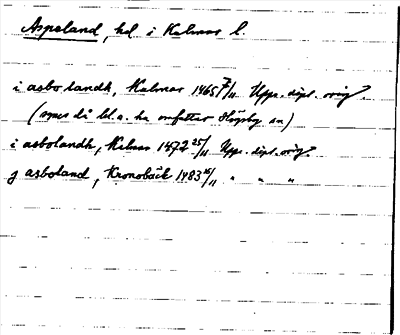 Aspeland, hd. i Kalmar l.
i asbo landh, Kalmar 1465 7/11 Upps. dipl. orig.
(synes då bl.a. ha omfattat Högsby sn)
i asbolandh, Kalmar 1472 25/11 Upps. dipl. orig.
j asboland, Kronobäck 1483 16/11 " " "